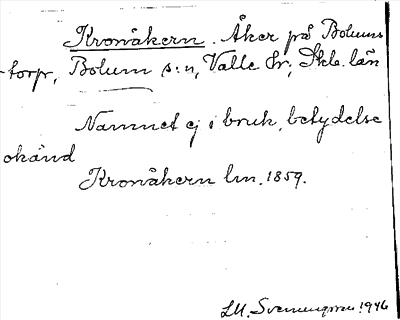 Kronåkern. Åker på Bolums
torp, Bolum s:n, Valle hr, Skb. län
Namnet ej i bruk, betydelse
okänd
Kronåkern lm. 1859.
L.M. Svenungsson 1946